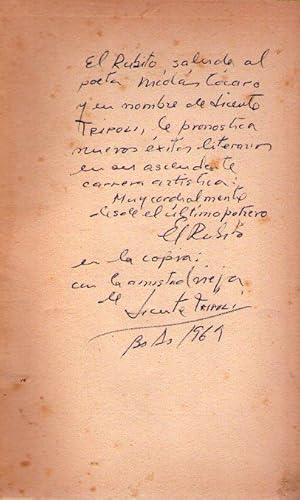 El Rubito saluda al
poeta Nicolás Cócaro
y en nombre de Vicente
TRIPOLI, le pronostica
nuevos exitos literarios
en su ascendente
carrera artistica:
Muy cordialmente
desde el último potrero
El Rubito
en la copia:
con la amistad vieja
de
Vicente TRIPOLI
Bs As 1969